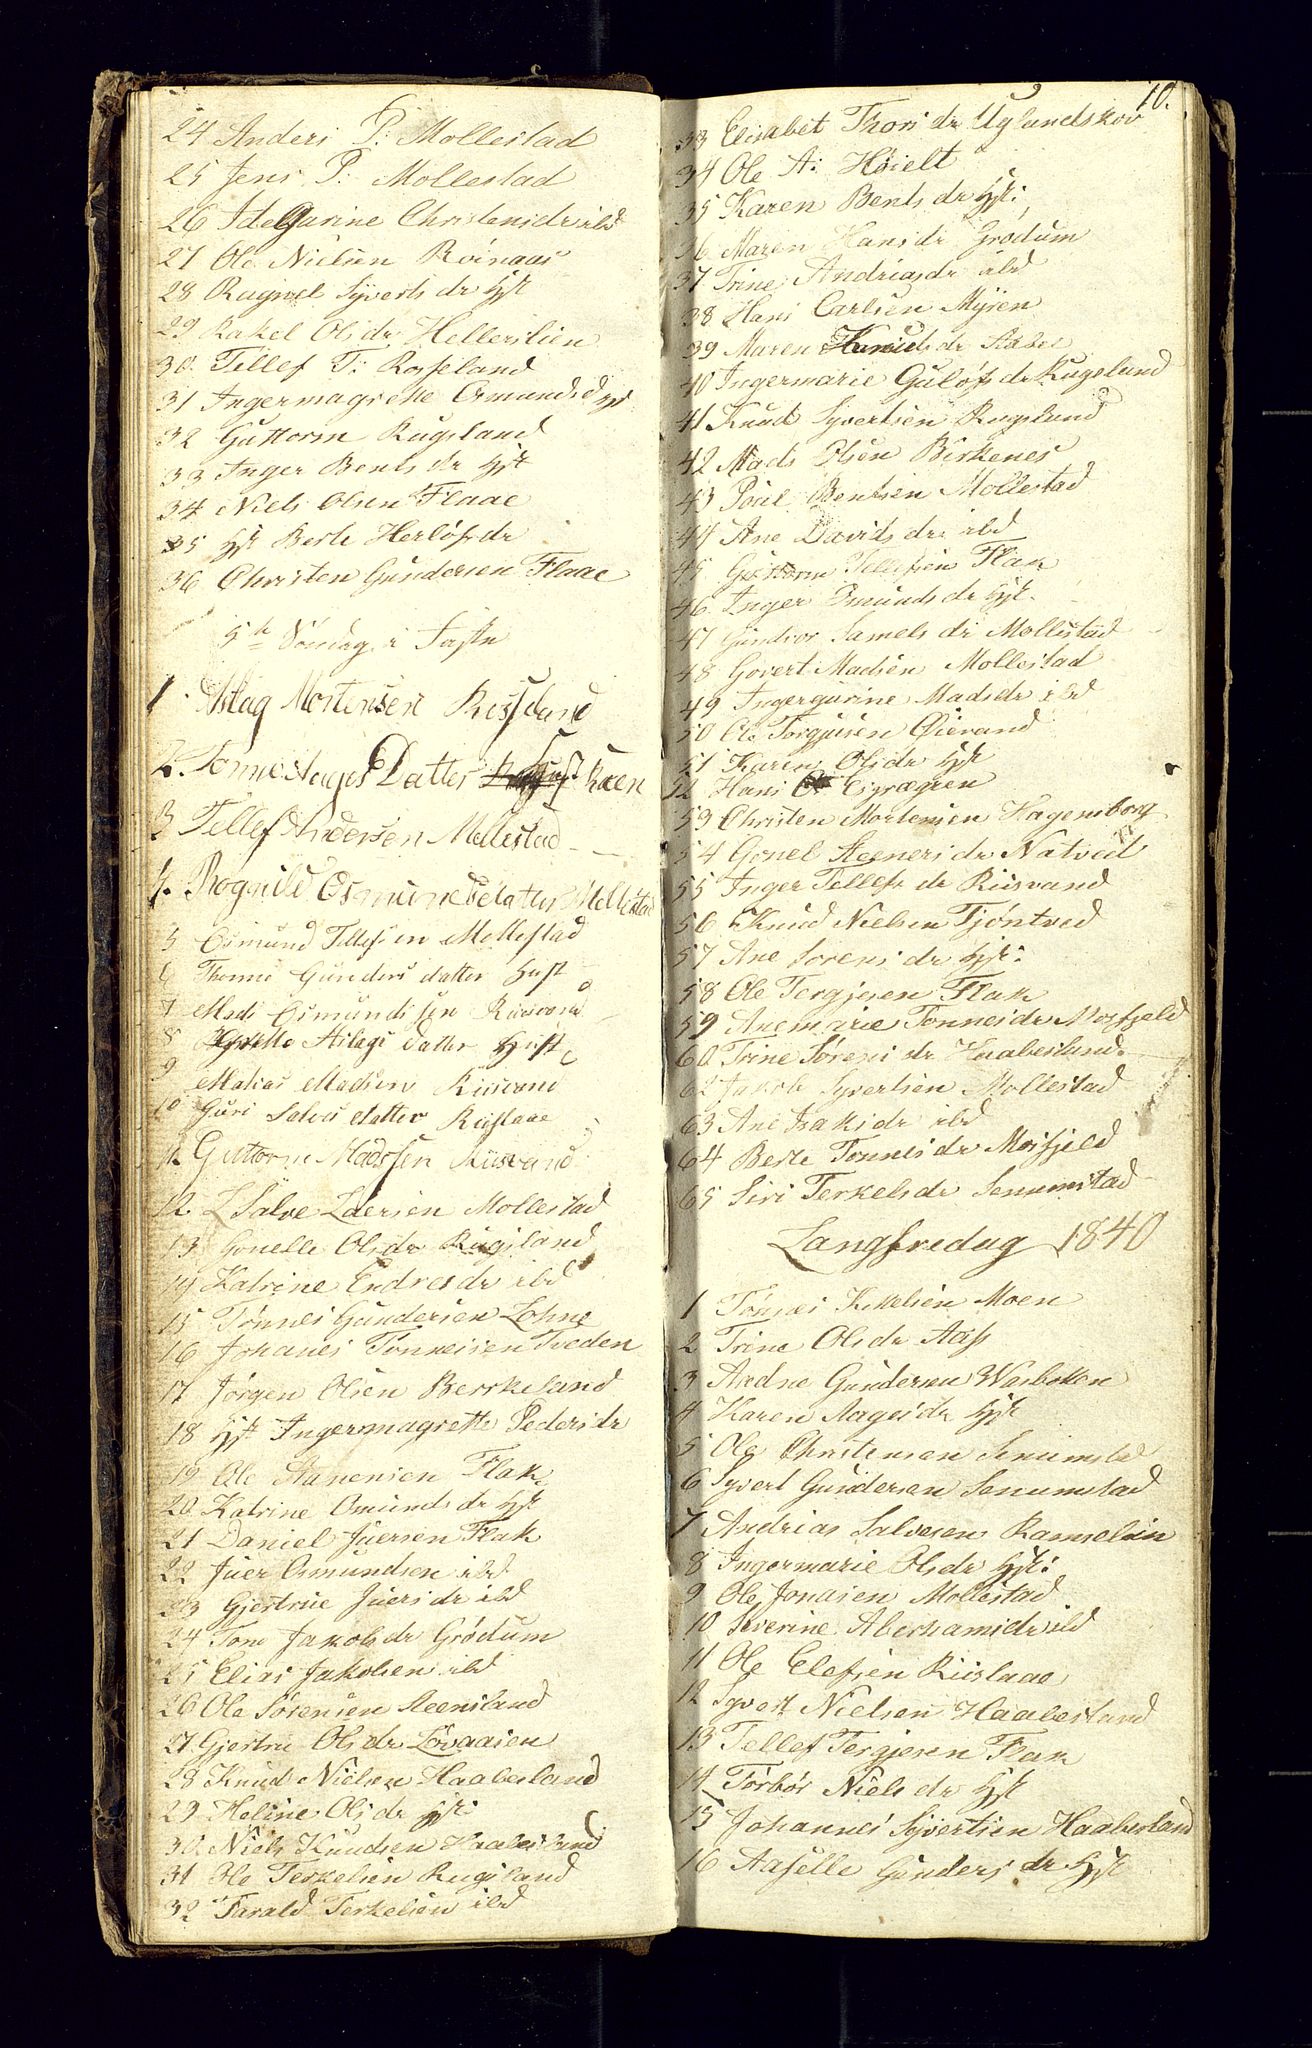 24 Anders P: Mollestad
25 Jens P: Mollestad
26 Idegurine Christensdr ibd
27 Ole Nielsen Roinaas
28 Ragnel Syverts dr hst
29 Rakel Olsdr Hellerslien
30 Tellef T: Rosseland
31 Ingermagrette Osmundsd hst
32 Guttorm Rugsland
33 Inger Bents dr hst
34 Niels Olsen Flaae
35 hst Berte Herlofs dr
36 Christen Gundersen Flaae
5te Söndag i Faste
1. Aslag Mortensen Rosseland
2. Tonne Aages Datter Raen
3 Tellef Andersen Mollestad
4. Rognild Osmundsdatter Mollestad
5 Osmund Tellefsen Mollestad
6 Thonne Gunders datter hust
7 Mads Osmundssen Riisvand
8 Aslags datter hust
9 Matias Madsen Riisvand
10 Guri Salves datter Riislaae
11 Guttorm Madssen Riisvand
12. Salve Larsen Mollestad
13 Gonelle Olsdr Rugsland
14 Katrine Endresdr ibd
15 Tönnes Gundersen Lohne
16 Johanes Tönnesen Tveden
17 Jörgen Olsen Berrkeland
18 hst Ingermagrette Peders dr
19 Ole Aanensen Flak
20 Katrine Omunds dr hst
21 Daniel Juersen Flak
22 Juer Osmundsen ibd
23 Gjertrue Juers dr ibd
24 Tone Jakobs dr Grödum
25 Elias Jakobsen ibd
26 Ole Sörensen Aeensland
27 Gjertru Olsdr Lövaasen
28 Knud Nielsen Haabesland
29 Heline Ols dr hst:
30 Niels Knudsen Haabesland
31 Ole Terkelsen Rugsland
32 Tarald Terkelsen ibd
10.
33 Elisabet Thors dr Uglandskov
34 Ole A: Höielt
35 Karen Bents dr hst:
36 Maren Hansdr Grödum
37 Trine Andreasdr ibd
38 Hans Carlsen Mysen
39 Maren Knuds dr
40 Ingermarie Gulofs dr Rugsland
41 Knud Syvertsen Rugsland
42 Mads Olsen Birkenes
43 Poul Bentsen Mollestad
44 Ane Davids dr ibd
45 Guttorm Tellefsen Flak
46 Inger Omunds dr hst.
47 Gundor Samels dr Mollestad
48 Govert Madsen Mollestad
49 Ingergurine Madsdr ibd
50 Ole Torgjusen Oievand
51 Karen Olsdr hst
52 Hans
53 Christen Mortensen Hagensborg
54 Gonel Reeners dr Natved
55 Inger Tellefs dr Riisvand
56 Knud Nielsen Tjöntved
57 Ane Sorens dr hst:
58 Ole Tergjesen Flak
59 Anemarie Tonnesdr Mosfjeld
60 Trine Sörens dr Haabesland
62 Jakob Syvertsen Mollestad
63 Ane Isaksdr ibd
64 Berte Tonnesdr Mosfjeld
65 Siri Terkelsdr Senumstad
Langfredag 1840
1 Tönnes Kittelsen Moen
2 Trine Olsdr Aass
3 Aadne Gundersen Wasboken
4 Karen Aagesdr hst
5 Ole Christensen Senumstad
6 Syvert Gundersen Senumstad
7 Andrias Salvesen Ramselien
8 Ingermarie Olsdr hst:
9 Ole Jonasen Mollestad
10 Severine Aberhamsdr ibd
11 Ole Elefsen Riislaae
12 Syvert Nielsen Haabesland
13 Tellef Tergjesen Flak
14 Törbör Niels dr hst
15 Johannes Syvertsen Haabesland
16 Aasille Gunders dr hst